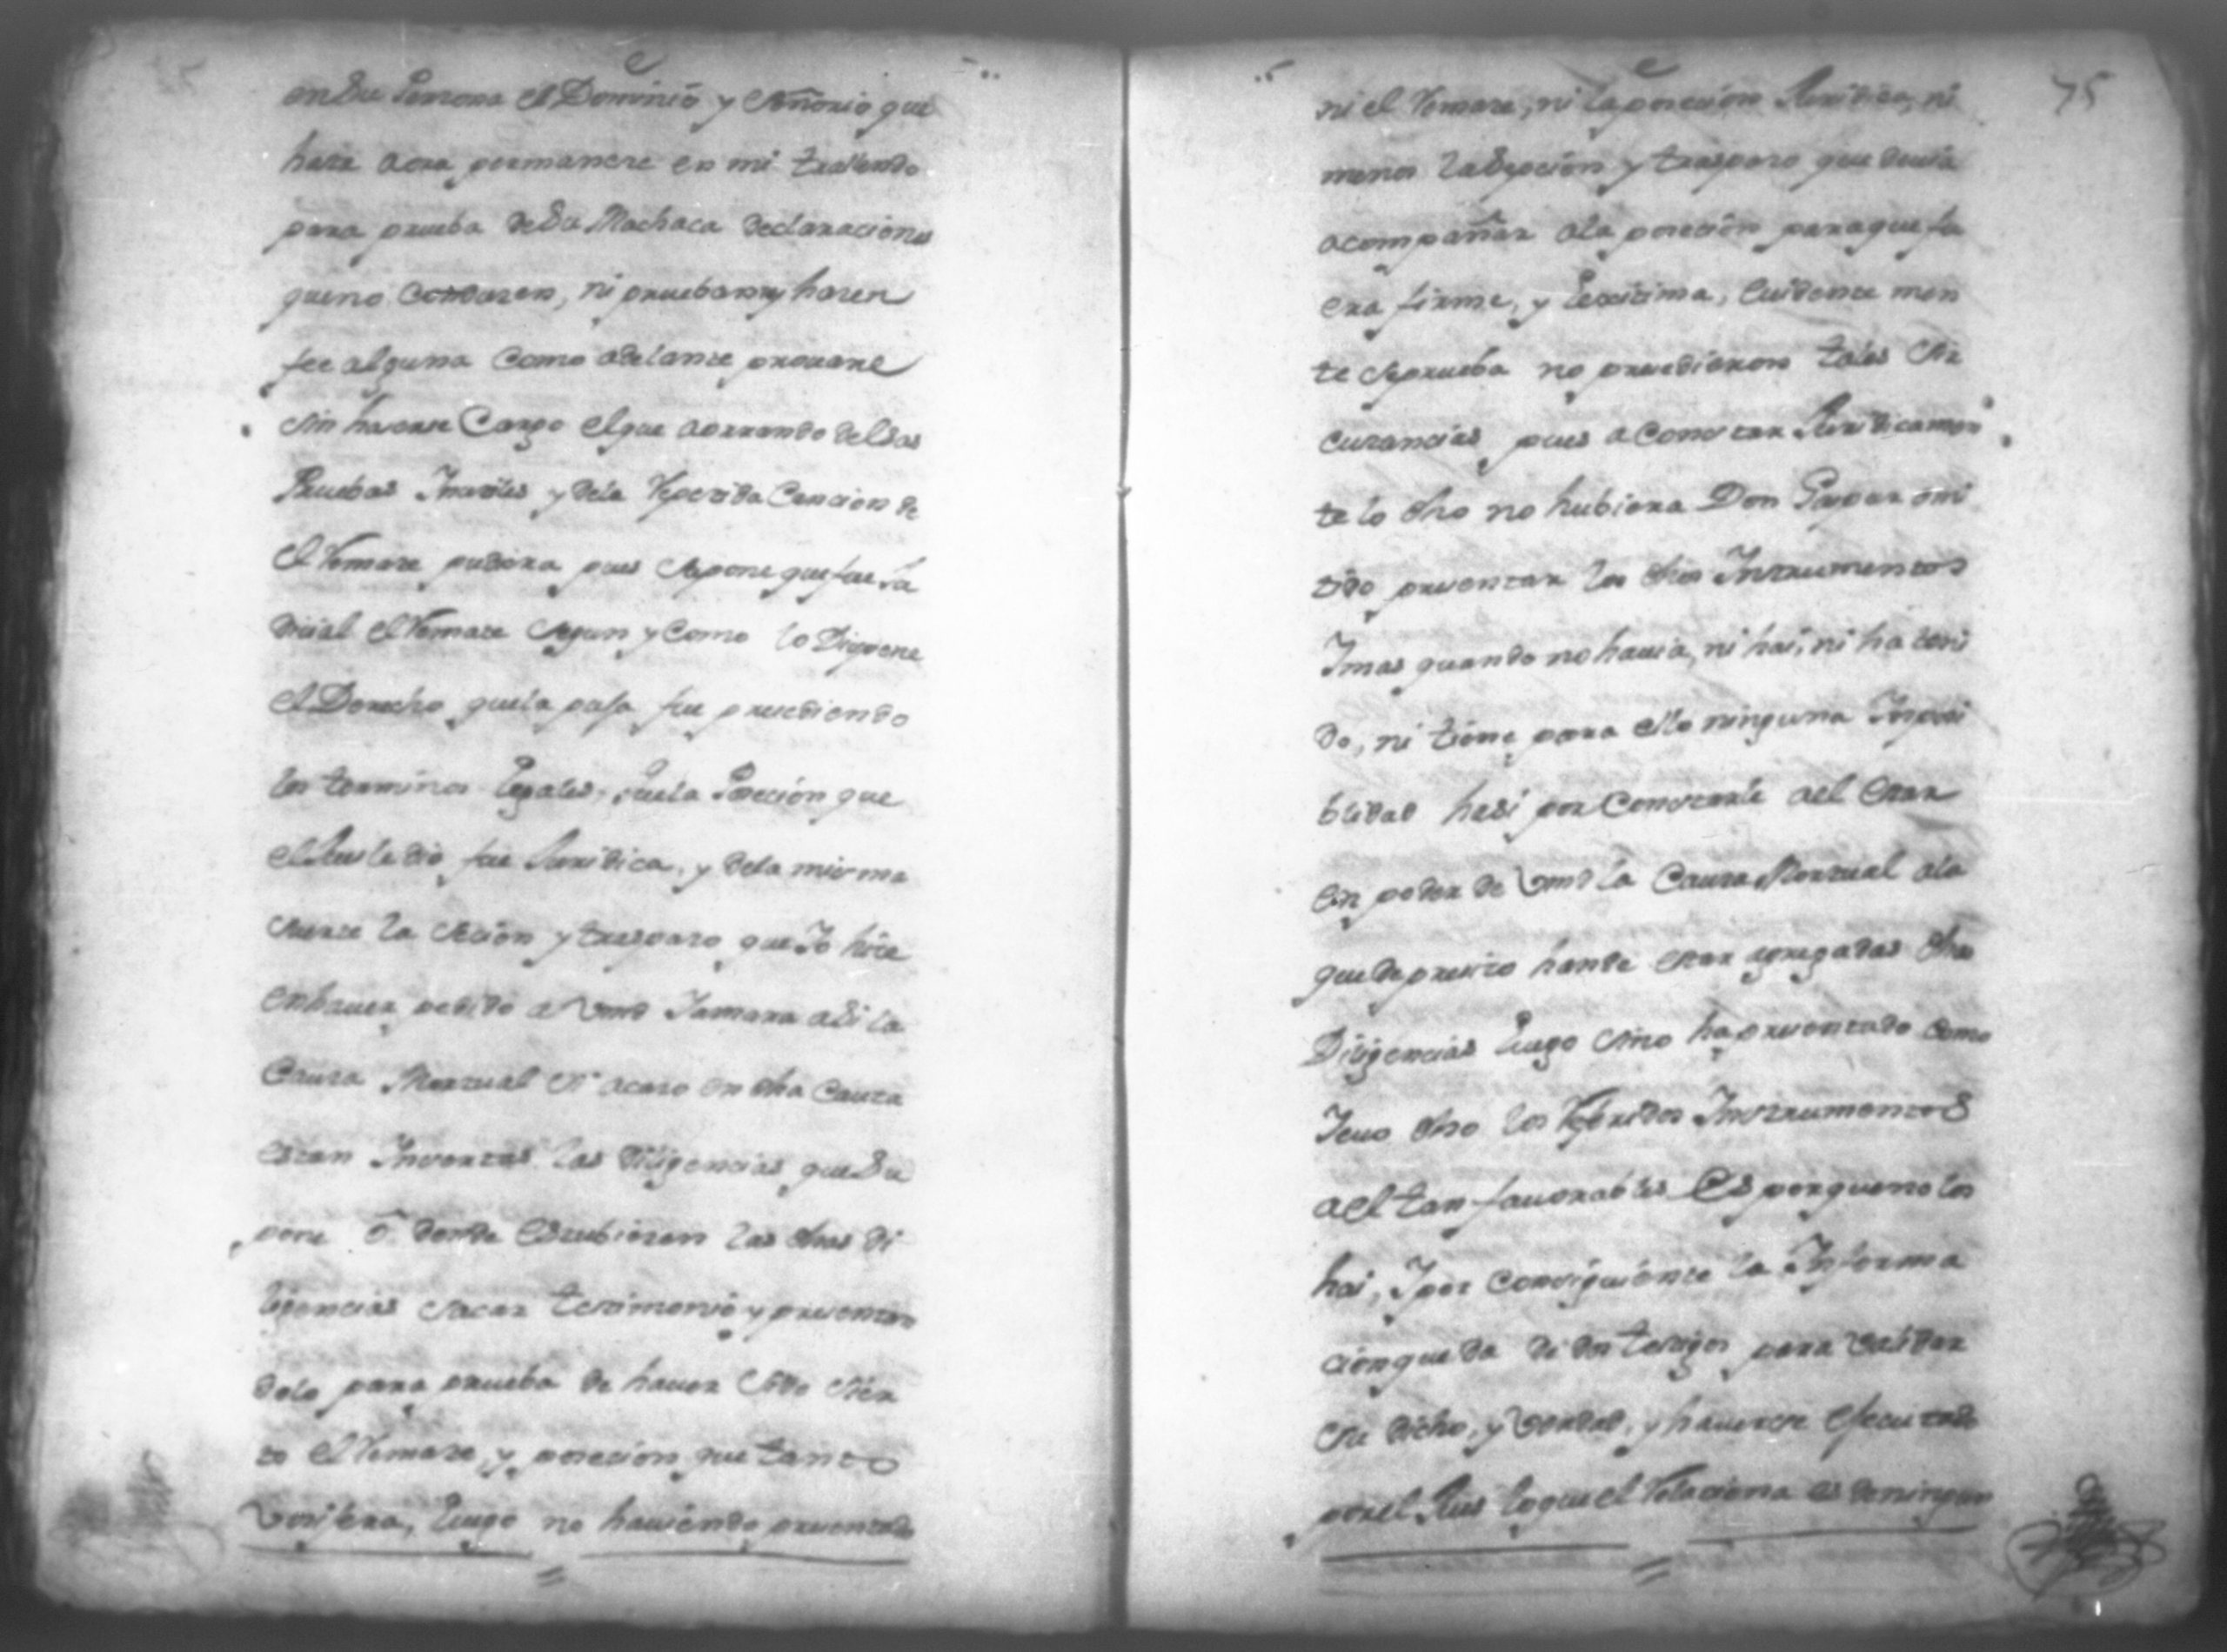 en Su Persona el Dominio y señorio que
hasta aora permanese en mi trallendo
para prueba de Su Machaca declaraciones
que no Condusen, ni prueban, y hasen
fee alguna Como adelante prouare
sin haserse Cargo el que aorrando delsas
Pruebas Inutiles y dela Repetida Cancion de
el Remate pudiera pues supone que fue Ju
disial el Remate segun y Como lo Dispone
el Derecho que la pasa fue presediendo
los terminos legales, que la Posecion que
el Jues le dio fue Juridica, y dela misma
suerte la secion y trespaso que Yo hise
en hauer pedido a Vmd Tamara asi la
Causa Mortual si acaso en dha Causa
estan Insertas las diligencias que Su
pone ô donde estubieren las dhas di
ligencias sacar testimonio y presentan
dolo para prueba de hauer sido sier
to el Remate, y posecion que tanto
Vosifera, luego no hauiendo presentado
75
ni el Remate, ni la posecion Juridica, ni
menos la Sepcion y traspaso que deuia
acompañar ala posecion para que fu
era firme, y lexitima, euidente men
te se prueba no presedieron tales sir
cunstancias pues a Constar Juridicamen
te lo dho no hubiera Don Gaspar omi
tido presentar los dhos Instrumentos
Y mas quando no hauia, ni hai, ni ha teni
do, ni tiene para ello ninguna Inposi
blidad hasi por Constarle ael estar
en poder de Vmd la Causa Mortual ala
que de presiso han de estar agregadas dhas
Diligencias luego sino ha presentado Como
Teuo dho los Referidos Instrumentos
a el tan fauorables es porque no los
hai, Y por Consiguiente la Informa
cion que da de dos testigos para Validar
su dicho, y Verdad, y hauerse efecutado
por el Jues lo que el Relaciona es de ningun